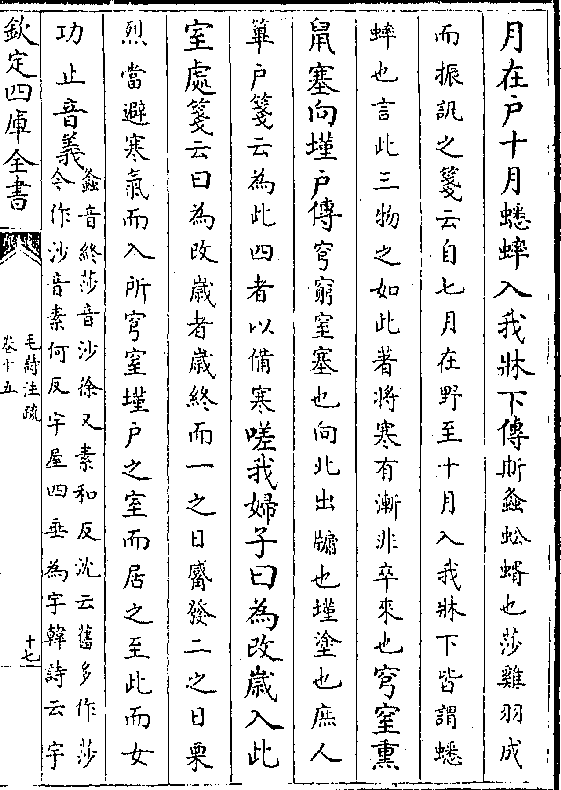 月在户十月蟋蟀入我牀下傳斯螽蚣蝑也莎雞羽成
而振訊之箋云自七月在野至十月入我牀下皆謂蟋
蟀也言此三物之如此著將寒有漸非卒來也穹窒熏
鼠塞向墐户傳穹窮窒塞也向北出牖也墐塗也庶人
篳户箋云為此四者以備寒嗟我婦子曰為改歲入此
室處箋云曰為改歲者歲終而一之日觱發二之日栗
烈當避寒氣而入所穹窒墐户之室而居之至此而女
功止音義螽音終莎音沙徐又素和反沈云舊多作莎
今作沙音素何反宇屋四垂為宇韓詩云宇
欽定四庫全書
毛詩注疏
卷十五
十七